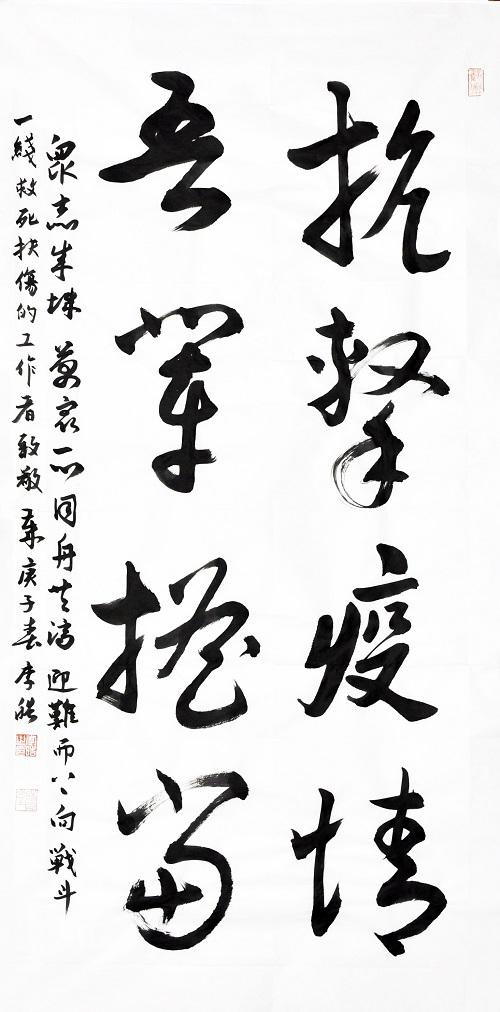 抗擊疫情
吾輩擔當
眾志成城萬衆一心同舟共濟迎難而上向戰斗
一綫救死扶傷的工作者致敬歲庚子春李